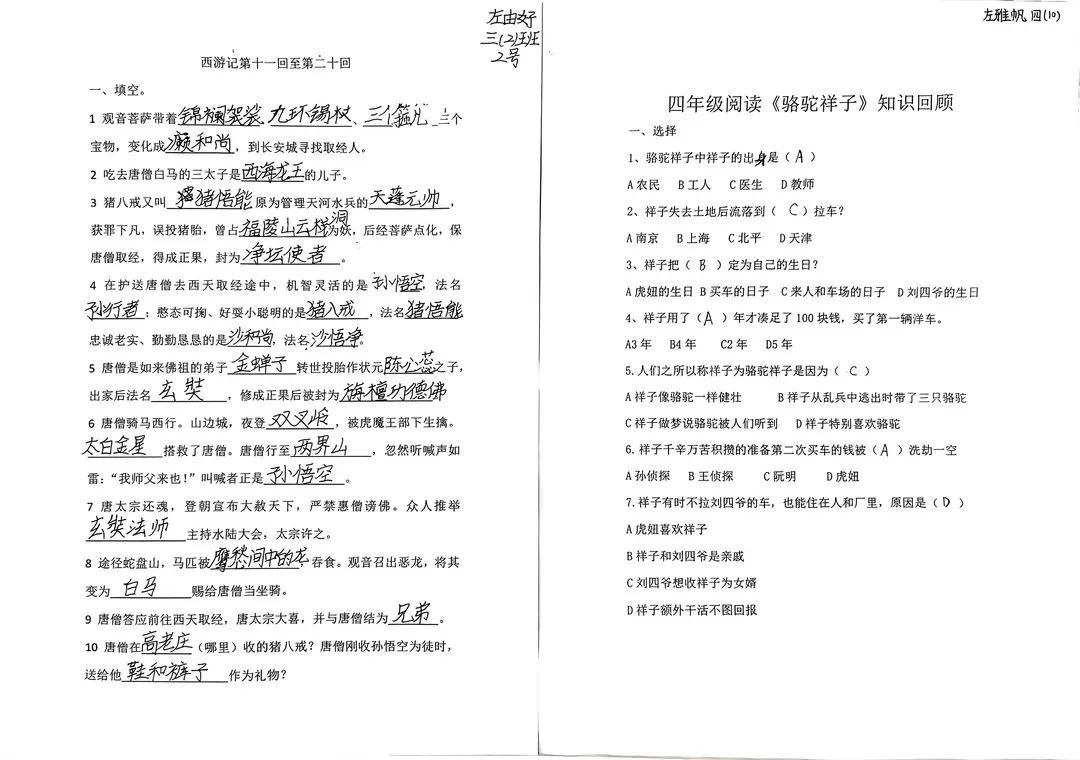 左由好
三(2)班
2号
西游记第十一回至第二十回
一、填空。
1 观音菩萨带着锦襕袈裟、九环锡杖、三个箍儿 三个
宝物，变化成癞和尚，到长安城寻找取经人。
2 吃去唐僧白马的三太子是西海龙王的儿子。
3 猪八戒又叫 猪悟能 原为管理天河水兵的天蓬元帅，
获罪下凡，误投猪胎，曾占福陵山云栈洞为妖，后经菩萨点化，保
唐僧取经，得成正果，封为净坛使者。
4 在护送唐僧去西天取经途中，机智灵活的是 孙悟空，法名
孙行者；憨态可掬、好耍小聪明的是猪八戒，法名猪悟能
忠诚老实、勤勤恳恳的是沙和尚，法名沙悟净。
5 唐僧是如来佛祖的弟子 金蝉子 转世投胎作状元陈心蕊之子，
出家后法名 玄奘，修成正果后被封为旃檀功德佛
6 唐僧骑马西行。山边城，夜登双叉岭，被虎魔王部下生擒。
太白金星 搭救了唐僧。唐僧行至两界山，忽然听喊声如
雷：“我师父来也！”叫喊者正是孙悟空。
7 唐太宗还魂，登朝宣布大赦天下，严禁惠僧谤佛。众人推举
玄奘法师 主持水陆大会，太宗许之。
8 途径蛇盘山，马匹被鹰愁间中的龙吞食。观音召出恶龙，将其
变为 白马 赐给唐僧当坐骑。
9 唐僧答应前往西天取经，唐太宗大喜，并与唐僧结为兄弟。
10 唐僧在高老庄（哪里）收的猪八戒？唐僧刚收孙悟空为徒时，
送给他 鞋和裤子 作为礼物？
左雅帆 四(10)
四年级阅读《骆驼祥子》知识回顾
一、选择
1、骆驼祥子中祥子的出身是（A）
A 农民 B 工人 C 医生 D 教师
2、祥子失去土地后流落到（C）拉车？
A 南京 B 上海 C 北平 D 天津
3、祥子把（B）定为自己的生日？
A 虎妞的生日 B 买车的日子 C 来人和车场的日子 D 刘四爷的生日
4、祥子用了（A）年才凑足了 100 块钱，买了第一辆洋车。
A3 年 B4 年 C2 年 D5 年
5.人们之所以称祥子为骆驼祥子是因为（C）
A 祥子像骆驼一样健壮 B 祥子从乱兵中逃出时带了三只骆驼
C 祥子做梦说骆驼被人们听到 D 祥子特别喜欢骆驼
6、祥子千辛万苦积攒的准备第二次买车的钱被（A）洗劫一空
A 孙侦探 B 王侦探 C 阮明 D 虎妞
7、祥子有时不拉刘四爷的车，也能住在人和厂里，原因是（D）
A 虎妞喜欢祥子
B 祥子和刘四爷是亲戚
C 刘四爷想收祥子为女婿
D 祥子额外干活不图回报